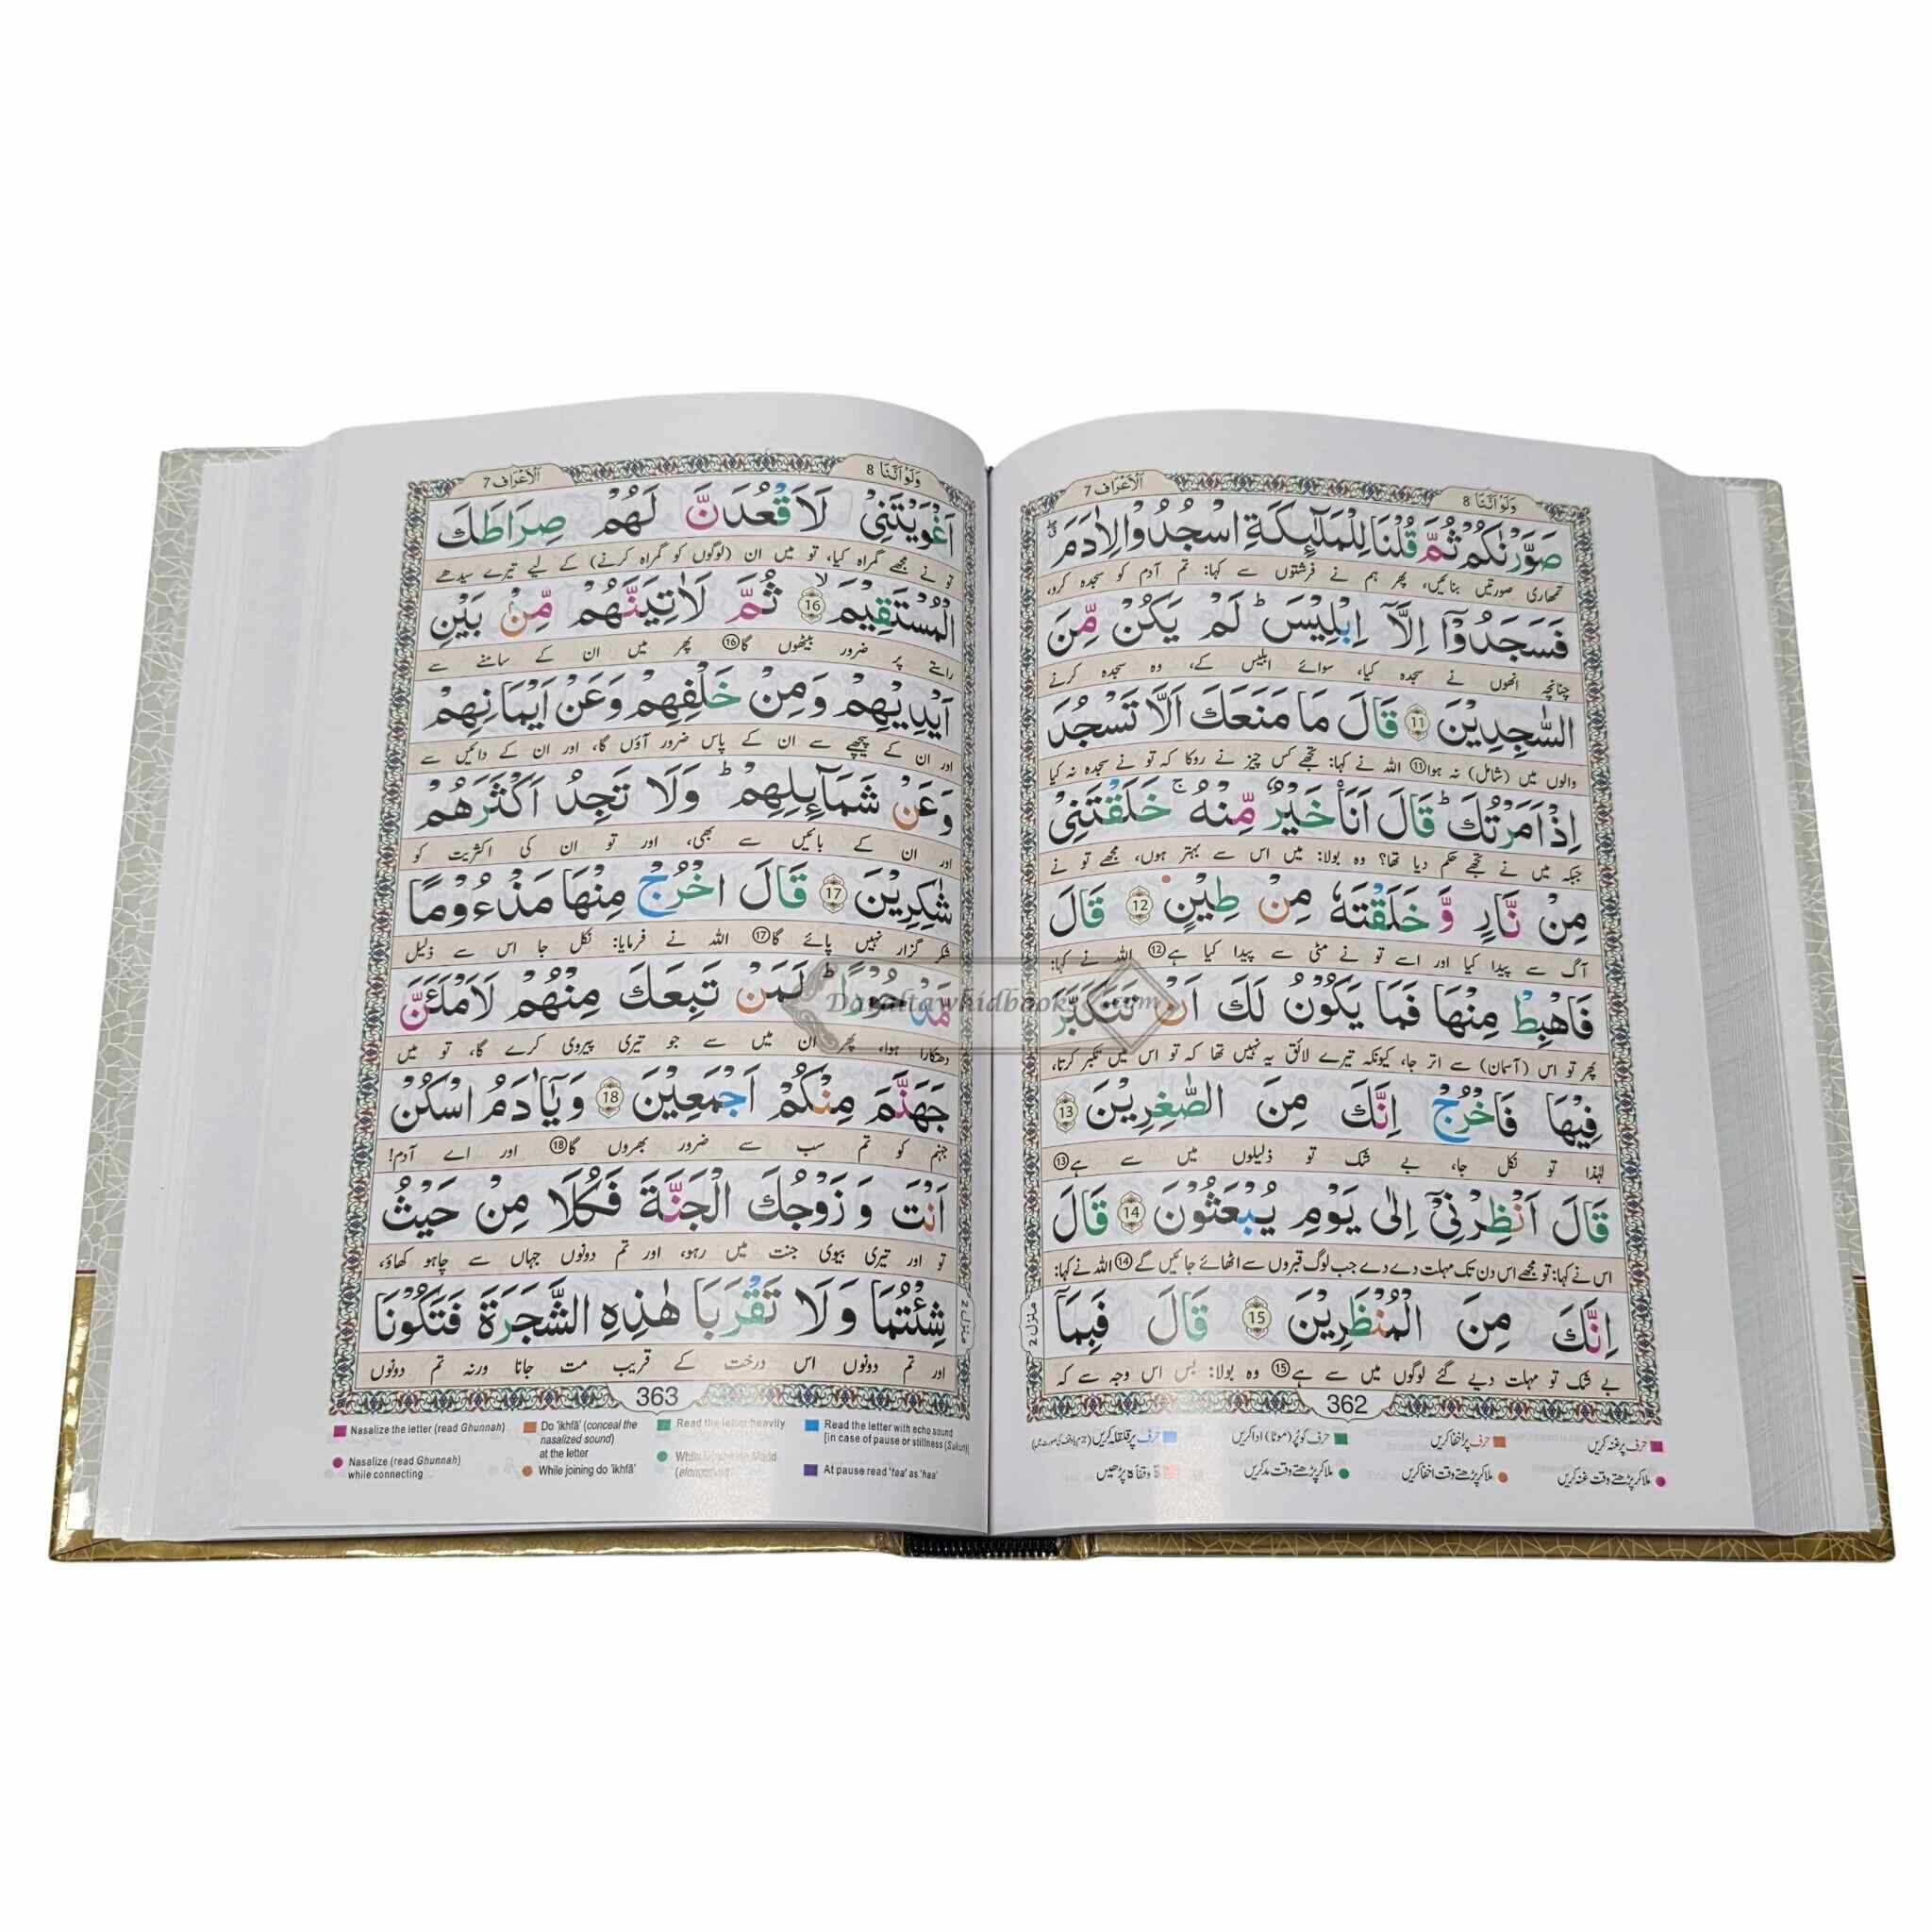 وَلَوْ اَنَّنَا 8
اَلْاَعْرَاف 7
صَوَّرْنٰكُمْ ثُمَّ قُلْنَا لِلْمَلٰٓئِكَةِ اسْجُدُوْا لِاٰدَمَ ۖ
تمھاری صورتیں بنائیں، پھر ہم نے فرشتوں سے کہا: تم آدم کو سجدہ کرو،
فَسَجَدُوْٓا اِلَّآ اِبْلِيْسَ ؕ لَمْ يَكُنْ مِّنَ
چنانچہ انھوں نے سجدہ کیا، سوائے ابلیس کے، وہ سجدہ کرنے
السّٰجِدِيْنَ 11 قَالَ مَا مَنَعَكَ اَلَّا تَسْجُدَ
والوں میں (شامل) نہ ہوا⑪ اللہ نے کہا: تجھے کس چیز نے روکا کہ تو نے سجدہ نہ کیا
اِذْ اَمَرْتُكَ ؕ قَالَ اَنَا خَيْرٌ مِّنْهُ ۚ خَلَقْتَنِيْ
جبکہ میں نے تجھے حکم دیا تھا؟ وہ بولا: میں اس سے بہتر ہوں، مجھے تو نے
مِنْ نَّارٍ وَّ خَلَقْتَهٗ مِنْ طِيْنٍ 12 قَالَ
آگ سے پیدا کیا اور اسے تو نے مٹی سے پیدا کیا ہے⑫ اللہ نے کہا:
فَاهْبِطْ مِنْهَا فَمَا يَكُوْنُ لَكَ اَنْ تَتَكَبَّرَ
پھر تو اس (آسمان) سے اتر جا، کیونکہ تیرے لائق یہ نہیں تھا کہ تو اس میں تکبر کرتا،
فِيْهَا فَاخْرُجْ اِنَّكَ مِنَ الصّٰغِرِيْنَ 13
لہٰذا تو نکل جا، بے شک تو ذلیلوں میں سے ہے⑬
قَالَ اَنْظِرْنِيْٓ اِلٰى يَوْمِ يُبْعَثُوْنَ 14 قَالَ
اس نے کہا: تو مجھے اس دن تک مہلت دے دے جب لوگ قبروں سے اٹھائے جائیں گے⑭ اللہ نے کہا:
اِنَّكَ مِنَ الْمُنْظَرِيْنَ 15 قَالَ فَبِمَآ
بے شک تو مہلت دیے گئے لوگوں میں سے ہے⑮ وہ بولا: بس اس وجہ سے کہ
منزل 2
362
حرف پر غنہ کریں
حرف پر اخفا کریں
حرف کو پُر (موٹا) ادا کریں
حرف پر قلقلہ کریں
ملا کر پڑھتے وقت غنہ کریں
ملا کر پڑھتے وقت اخفا کریں
ملا کر پڑھتے وقت مد کریں
وَلَوْ اَنَّنَا 8
اَلْاَعْرَاف 7
اَغْوَيْتَنِيْ لَاَقْعُدَنَّ لَهُمْ صِرَاطَكَ
تو نے مجھے گمراہ کیا، تو میں ان (لوگوں کو گمراہ کرنے) کے لیے تیرے سیدھے
الْمُسْتَقِيْمَ ۙ 16 ثُمَّ لَاٰتِيَنَّهُمْ مِّنْۢ بَيْنِ
راستے پر ضرور بیٹھوں گا⑯ پھر میں ان کے سامنے سے
اَيْدِيْهِمْ وَمِنْ خَلْفِهِمْ وَعَنْ اَيْمَانِهِمْ
اور ان کے پیچھے سے ان کے پاس ضرور آؤں گا، اور ان کے دائیں سے
وَعَنْ شَمَآئِلِهِمْ ؕ وَلَا تَجِدُ اَكْثَرَهُمْ
اور ان کے بائیں سے بھی، اور تو ان کی اکثریت کو
شٰكِرِيْنَ 17 قَالَ اخْرُجْ مِنْهَا مَذْءُوْمًا
شکر گزار نہیں پائے گا⑰ اللہ نے فرمایا: نکل جا اس سے ذلیل
لَمَنْ تَبِعَكَ مِنْهُمْ لَاَمْلَـَٔنَّ
دھتکارا ہوا، پھر ان میں سے جو تیری پیروی کرے گا، تو میں
جَهَنَّمَ مِنْكُمْ اَجْمَعِيْنَ 18 وَيٰٓاٰدَمُ اسْكُنْ
جہنم کو تم سب سے ضرور بھروں گا⑱ اور اے آدم!
اَنْتَ وَ زَوْجُكَ الْجَنَّةَ فَكُلَا مِنْ حَيْثُ
تو اور تیری بیوی جنت میں رہو، اور تم دونوں جہاں سے چاہو کھاؤ،
شِئْتُمَا وَلَا تَقْرَبَا هٰذِهِ الشَّجَرَةَ فَتَكُوْنَا
اور تم دونوں اس درخت کے قریب مت جانا ورنہ تم دونوں
منزل 2
363
Nasalize the letter (read Ghunnah)
Do 'ikhfā' (conceal the nasalized sound) at the letter
Read the letter heavily
Read the letter with echo sound [in case of pause or stillness (Sakun)]
Nasalize (read Ghunnah) while connecting
While joining do 'ikhfā'
At pause read 'taa' as 'haa'
Darultawhidbooks.com